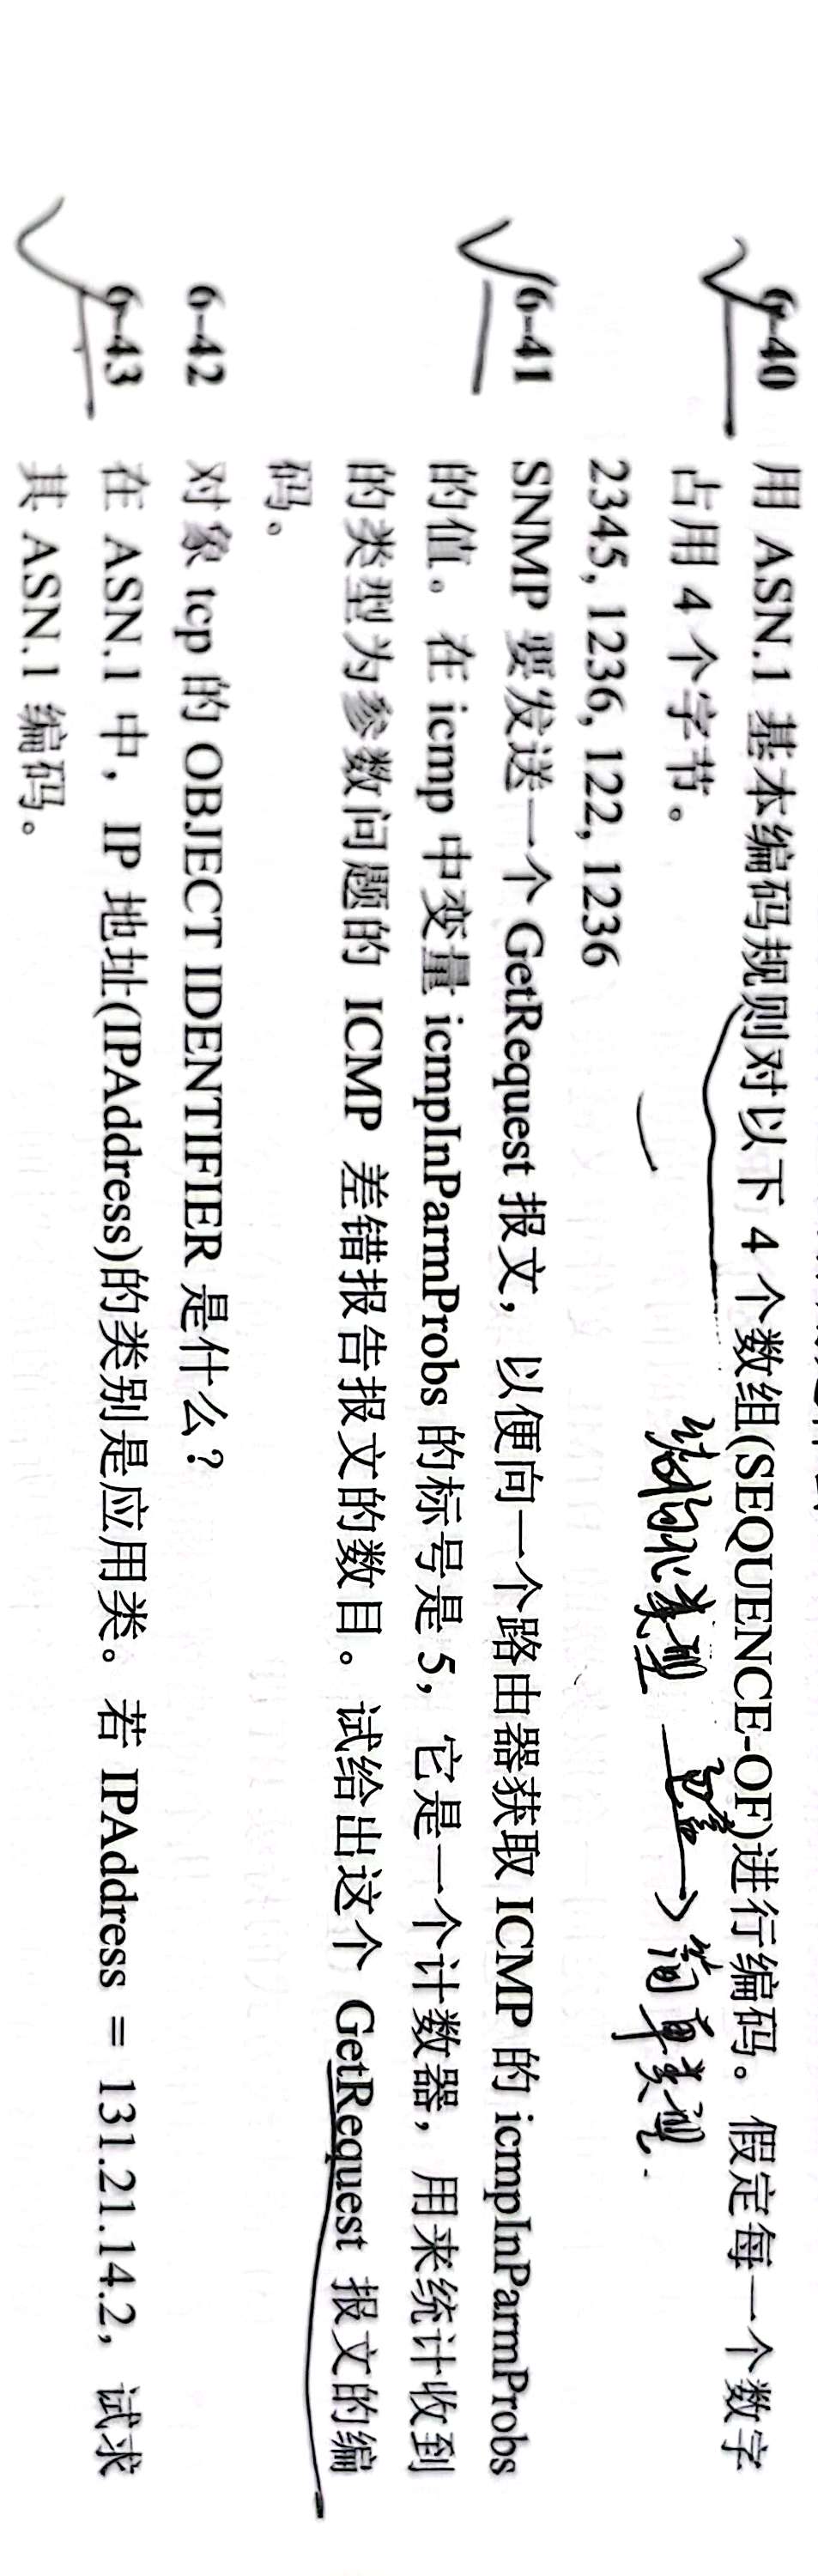 6-40 用 ASN.1 基本编码规则对以下 4 个数组(SEQUENCE-OF)进行编码。假定每一个数字
占用 4 个字节。 结构化类型 包含→ 简单类型.
2345, 1236, 122, 1236
6-41 SNMP 要发送一个 GetRequest 报文，以便向一个路由器获取 ICMP 的 icmpInParmProbs
的值。在 icmp 中变量 icmpInParmProbs 的标号是 5，它是一个计数器，用来统计收到
的类型为参数问题的 ICMP 差错报告报文的数目。试给出这个 GetRequest 报文的编
码。
6-42 对象 tcp 的 OBJECT IDENTIFIER 是什么？
6-43 在 ASN.1 中，IP 地址(IPAddress)的类别是应用类。若 IPAddress = 131.21.14.2，试求
其 ASN.1 编码。